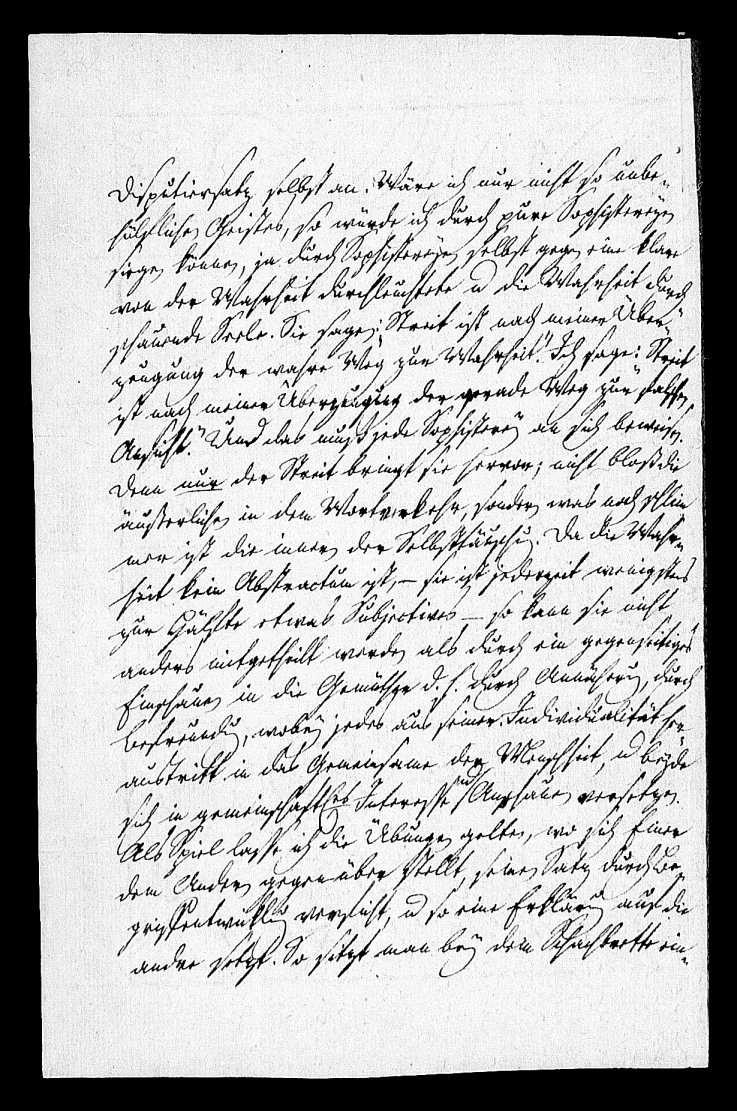 Disputiersatz selbst an. Wäre ich nur nicht so unbe-
hülflichen Geistes, so würde ich durch pure Sophistereyen
siegen können, ja durch Sophistereyen selbst gegen eine klare
von der Wahrheit durchleuchtete u die Wahrheit durch
schauende Seele. Sie sagen: „Streit ist nach meiner Über-
zeugung der wahre Weg zur Wahrheit". Ich sage: „Streit
ist nach meiner Überzeugung der gerade Weg zur falschen
Ansicht." Und das muß jede Sophisterey an sich beweisen.
Denn nur der Streit bringt sie hervor; nicht bloß die
äußerlichen in dem Wortverkehr, sondern was noch schlim
mer ist die innern der Selbsttäuschung. Da die Wahr-
heit kein Abstractum ist, – sie ist jederzeit wenigstens
zur Hälfte etwas Subjectives – so kann sie nicht
anders mitgetheilt werden als durch ein gegenseitiges
Einschauen in die Gemüther d. h. durch Annäherung, durch
Befreundung, wobey jedes aus seiner Individualität her-
austritt in das Gemeinsame der Menschheit, u beyde
sich in gemeinschaftliches Interesse und Anschauen versetzen.
Als Spiel lasse ich die Übungen gelten, wo sich Einer
dem Andern gegenüber stellt, seinen Satz durch Be-
griffentwicklung versicht, u so eine Erklärung auf die
andre setzt. So sitzt man bey dem Schachbrette ein-